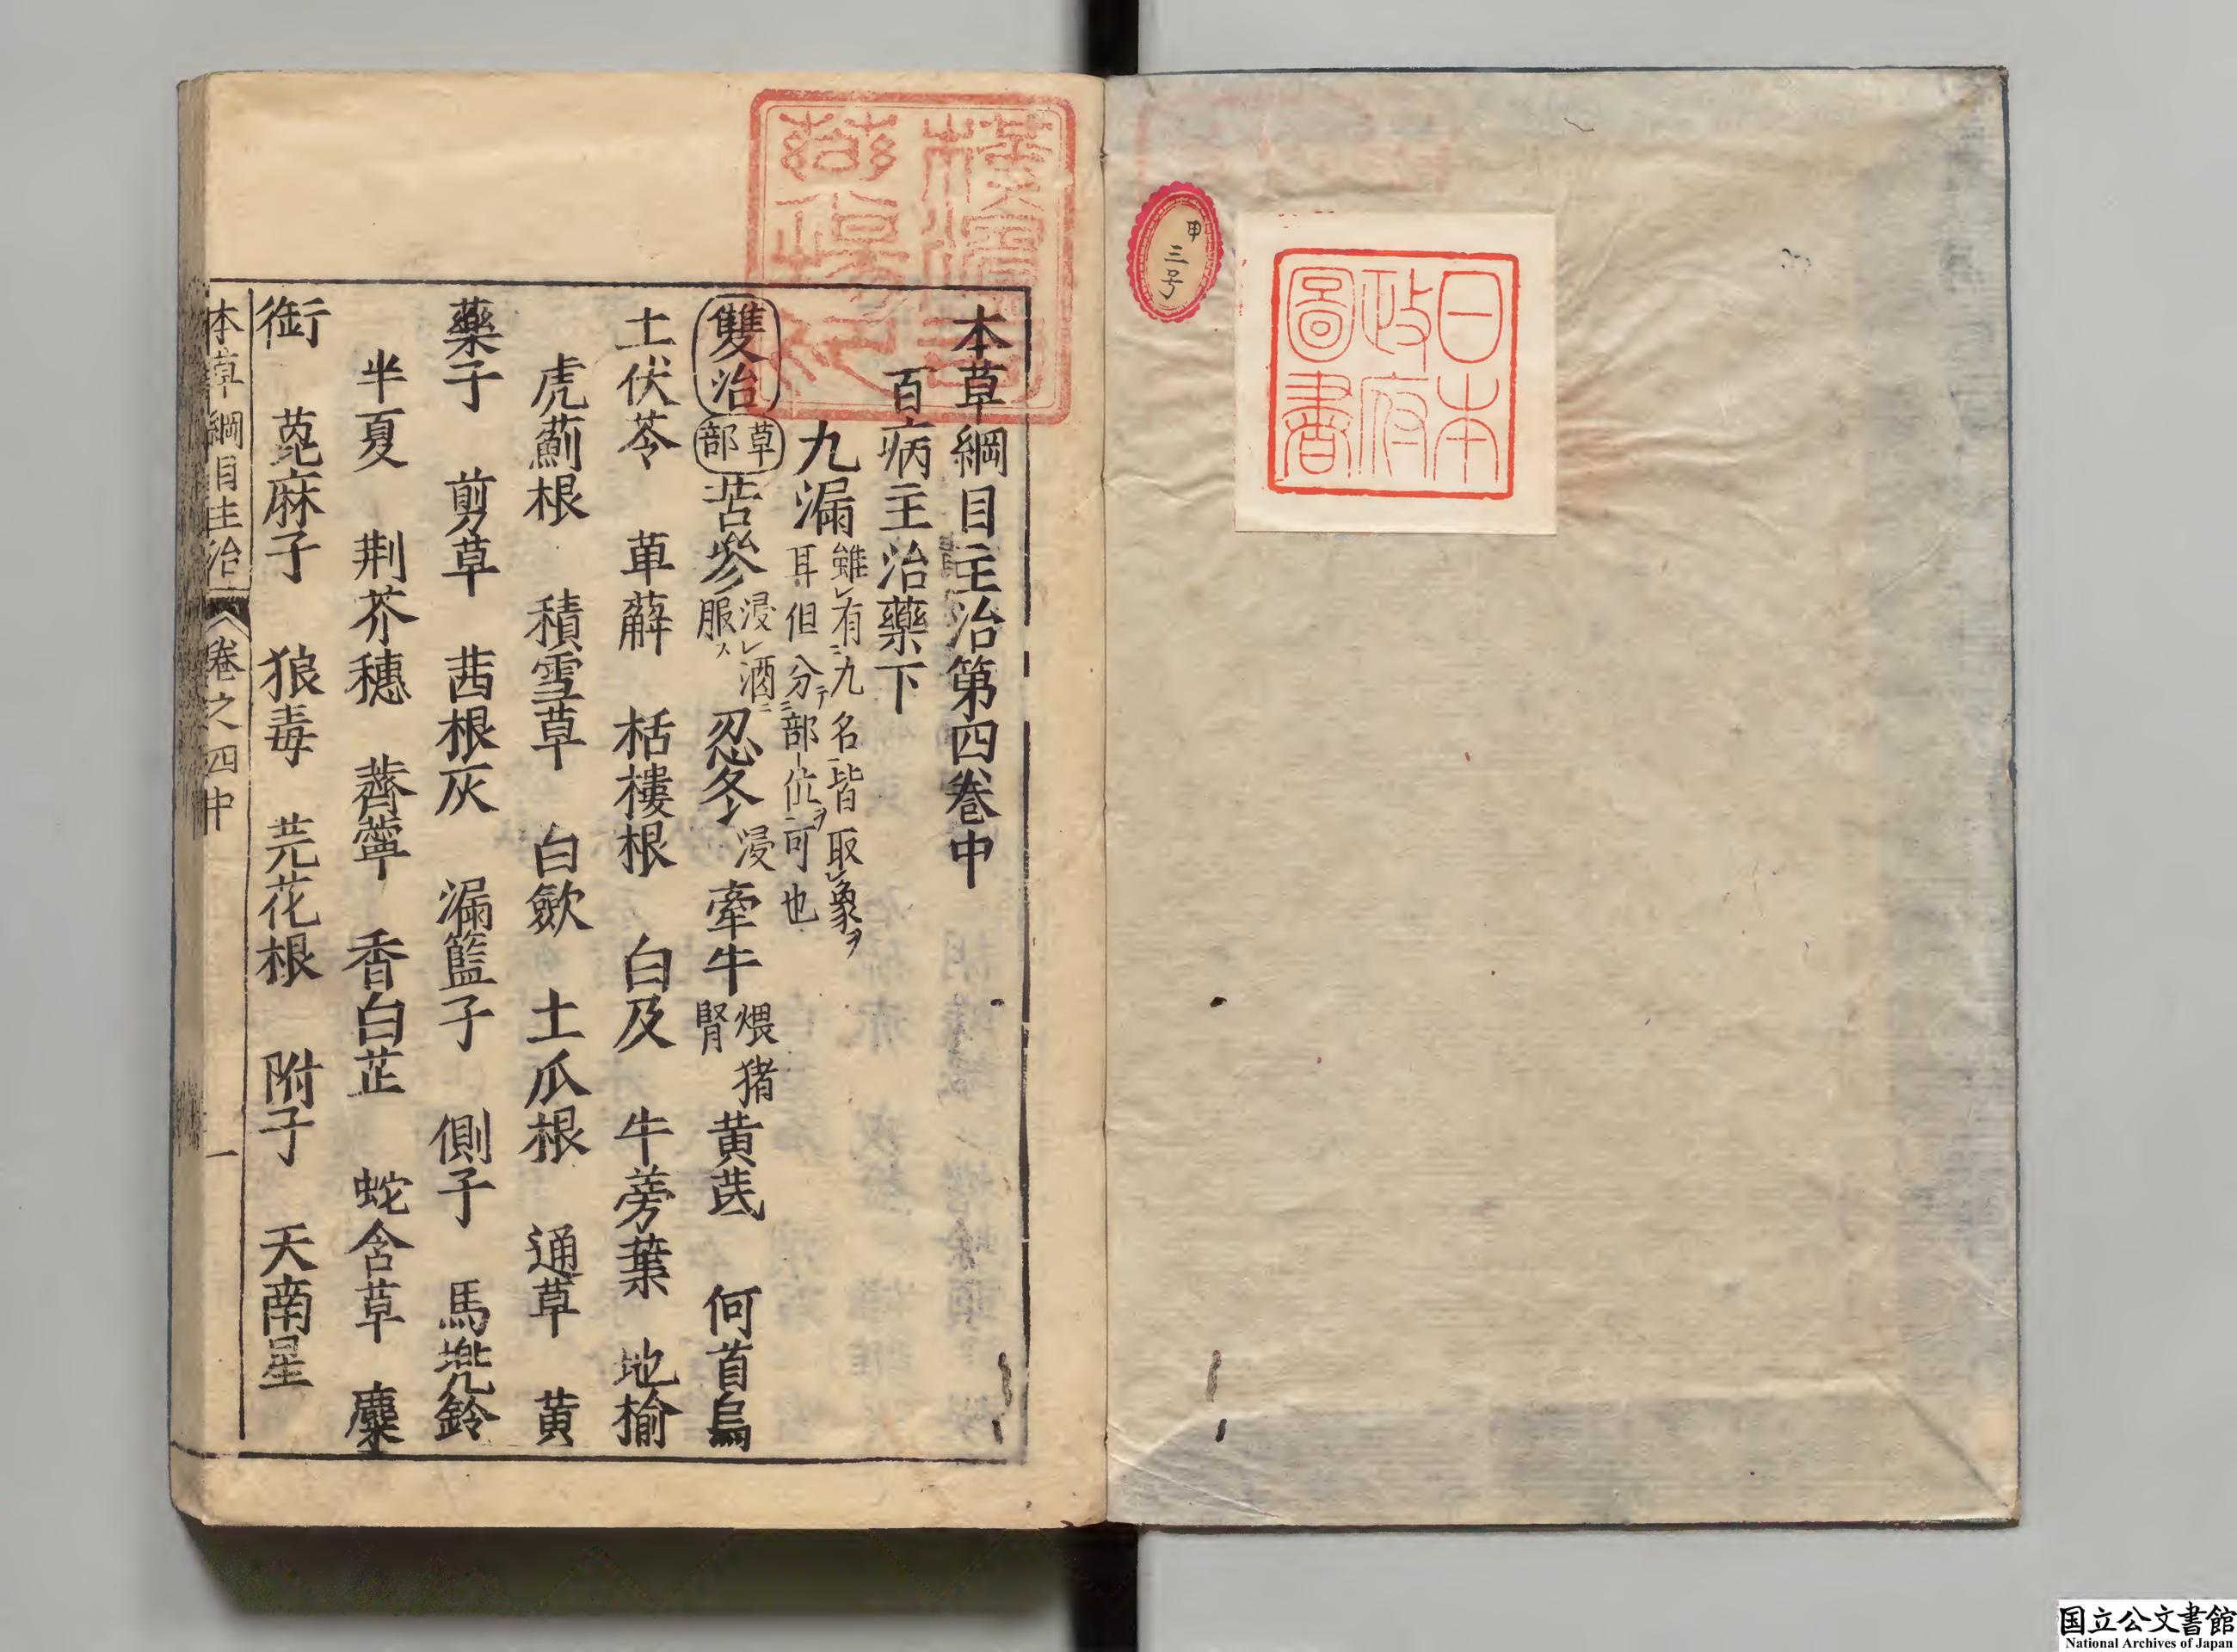 甲
三号
日本
政府
圖書
本草綱目主治第四卷中
百病主治藥下
九漏雖レ有二九名一皆取レ象ヲ
耳但分テ二部位ヲ一可也
雙治 草部 苦參浸レ酒ニ服ス 忍冬浸 牽牛煨猪腎 黃芪 何首烏
土伏苓 萆薢 栝樓根 白及 牛蒡葉 地榆
虎薊根 積雪草 白歛 土瓜根 通草 黃
藥子 剪草 茜根灰 漏籃子 側子 馬兠鈴
半夏 荆芥穗 薺薴 香白芷 蛇含草 麋
衘 蓖麻子 狼毒 芫花根 附子 天南星
本草綱目主治 卷之四中 一
国立公文書館
National Archives of Japan